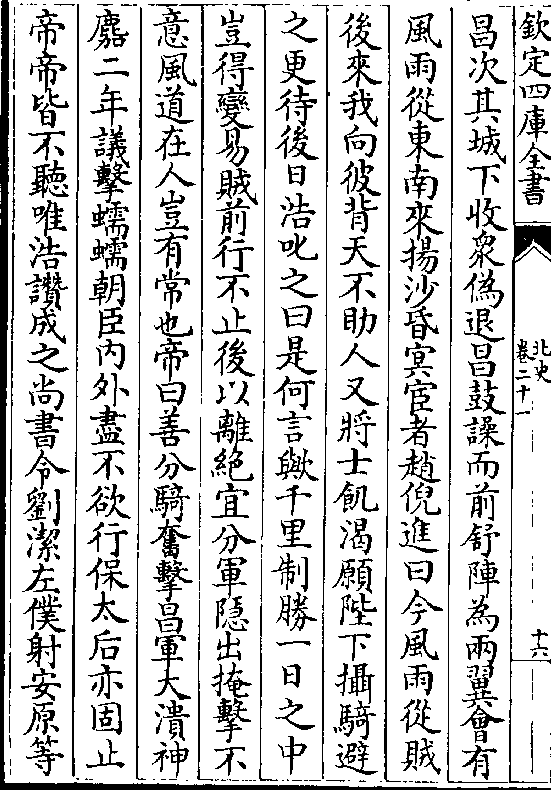 欽定四庫全書
北史
卷二十一
十六
昌次其城下收衆偽退昌鼓譟而前舒陣為兩翼會有
風雨從東南來揚沙昏冥宦者趙倪進曰今風雨從賊
後來我向彼背天不助人又將士飢渴願陛下攝騎避
之更待後日浩叱之曰是何言歟千里制勝一日之中
豈得變易賊前行不止後以離絶宜分軍隠出掩擊不
意風道在人豈有常也帝曰善分騎奮擊昌軍大潰神
䴥二年議擊蠕蠕朝臣内外盡不欲行保太后亦固止
帝帝皆不聽唯浩讚成之尚書令劉潔左僕射安原等